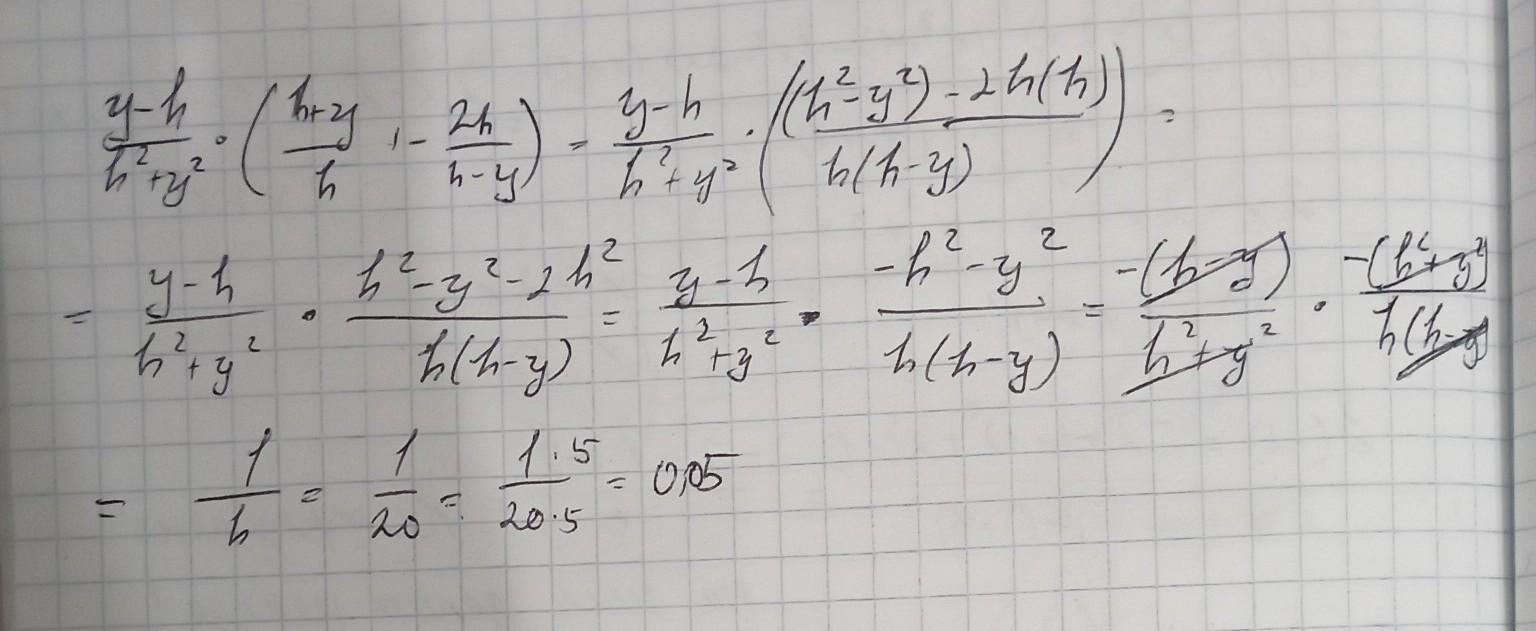 (y-h)/(h²+y²) · ((h+y)/h - 2h/(h-y)) = (y-h)/(h²+y²) · (((h²-y²)-2h(h))/(h(h-y))) =
= (y-h)/(h²+y²) · (h²-y²-2h²)/(h(h-y)) = (y-h)/(h²+y²) · (-h²-y²)/(h(h-y)) = (-(h-y))/(h²+y²) · (-(h²+y²))/(h(h-y))
= 1/h = 1/20 = (1·5)/(20·5) = 0,05